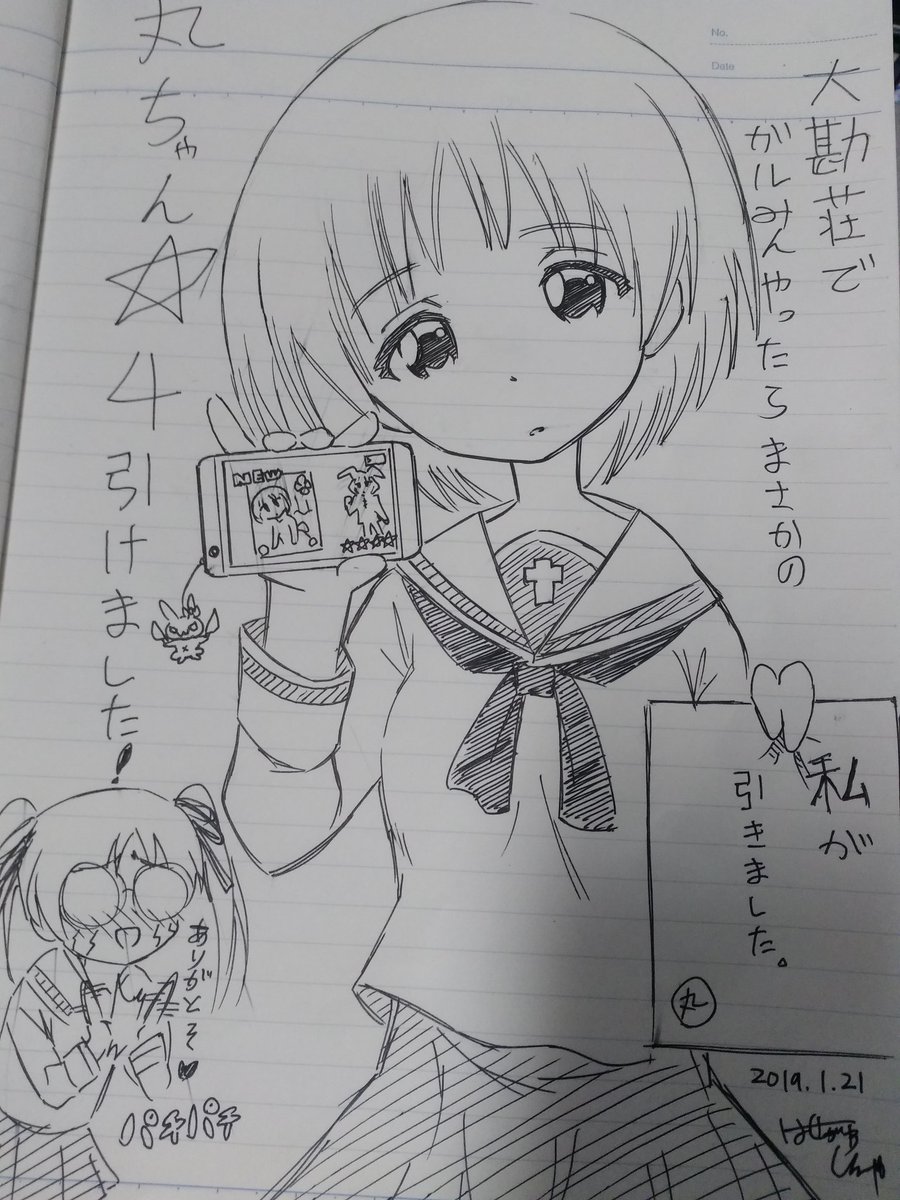 No.
Date
大勘荘で
ガルみんやったらまさかの
丸ちゃん☆4引けました!
NEW
☆☆☆☆
私が
引きました。
丸
ありがとそ♥
パチパチ
2019.1.21